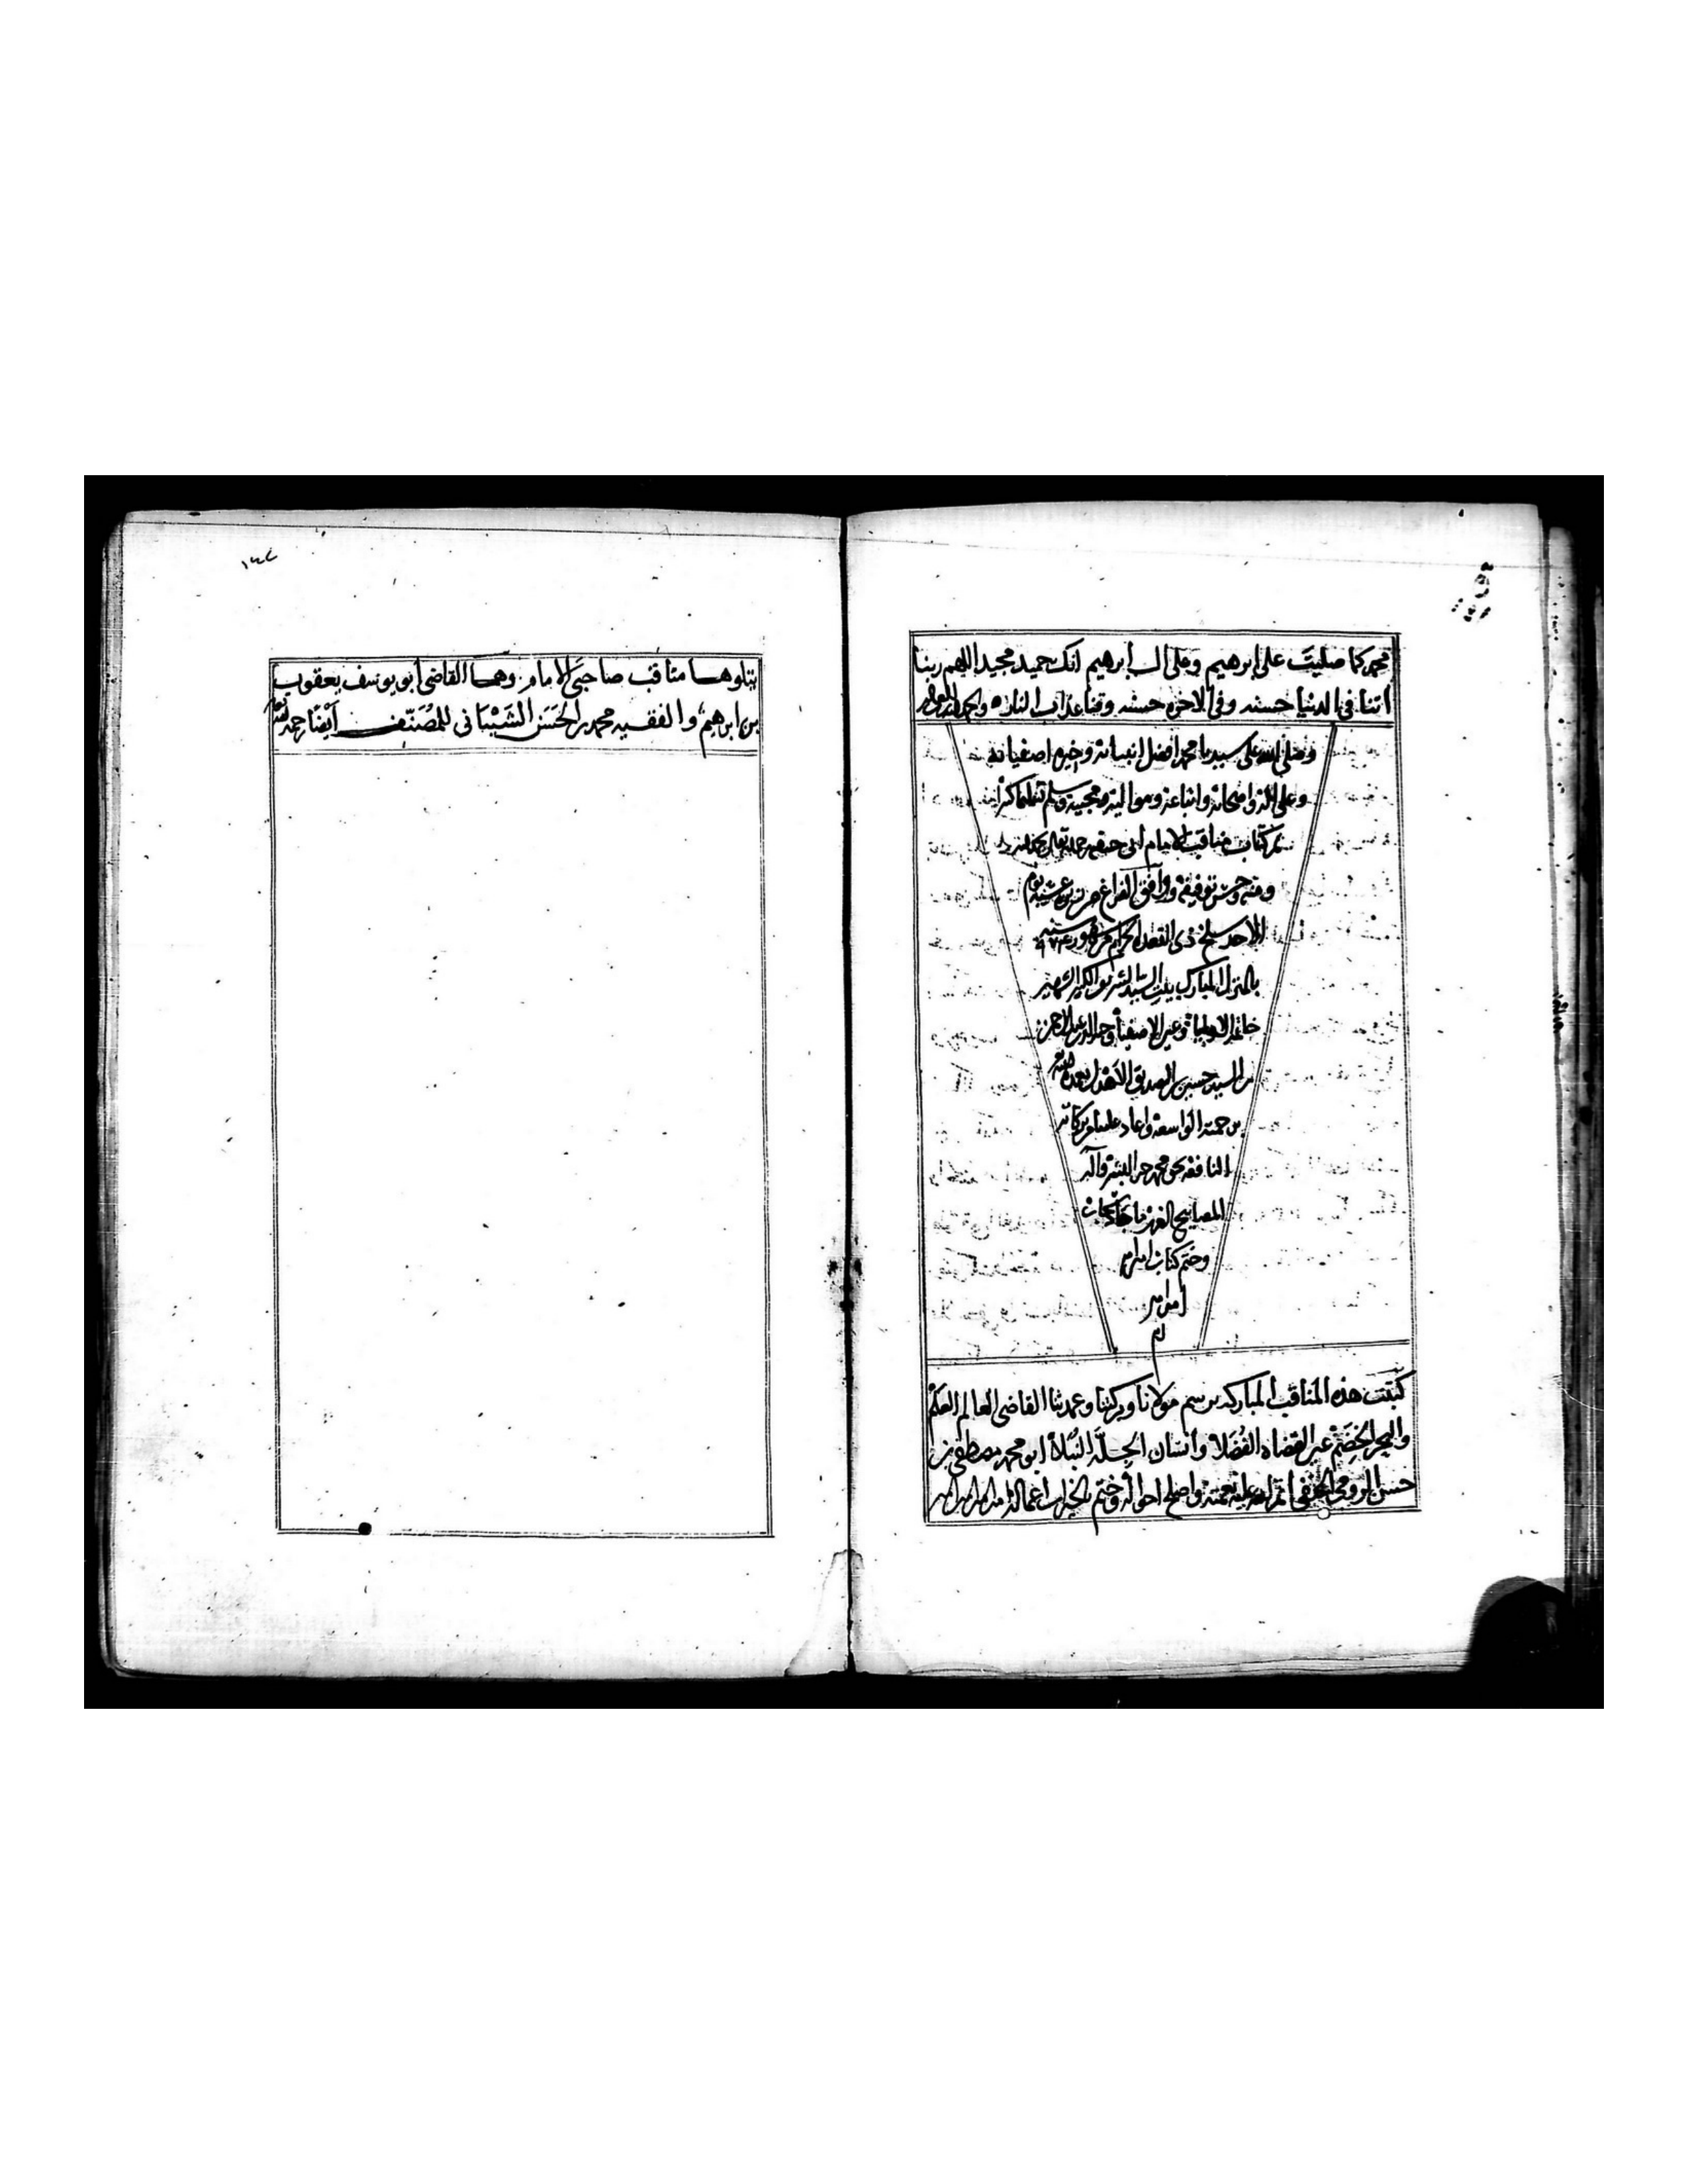 محمد كما صليت على ابرهيم وعلى ال ابرهيم انك حميد مجيد اللهم ربنا
اتنا في الدنيا حسنه وفي الاخره حسنه وقنا عذاب النار والحمد لله
وصلى الله على سيدنا محمد افضل انبيائه وخير اصفيائه
وعلى اله واصحابه واتباعه ومواليه ومحبيه وسلم تسليما كثيرا
تم كتاب مناقب الامام ابي حنيفه رحمه الله تعالى بحمد الله
ومنه وحسن توفيقه ووافق الفراغ من عشيه يوم
الاحد سلخ ذي القعده الحرام من شهور سنه
بالمنزل المبارك بيت السيد الشريف الكبير الشهير
خاتمه الاوليا وعين الاصفيا وجيه الدين عبد الرحمن
بن السيد حسين بن الصديق الاهدل تغمده الله
برحمته الواسعه واعاد علينا من بركاته
النافعه بحق محمد خير البشر واله
المصابيح الغرر ما
وختم كتاب امين
امين امين
ام
كتبت هذه المناقب المباركه برسم مولانا وبركتنا وعمدتنا القاضي العالم العلم
والبحر الخضم عين القضاه الفضلا وانسان الجله النبلا ابو محمد مصطفى بن
حسن الرومي الحنفي اتم الله عليه نعمته واصلح احواله وختم بالخيرات اعماله امين امين امين
يتلوها مناقب صاحبي الامام وهما القاضي ابو يوسف يعقوب
بن ابرهيم والفقيه محمد بن الحسن الشيباني للمصنف ايضا رحمه الله